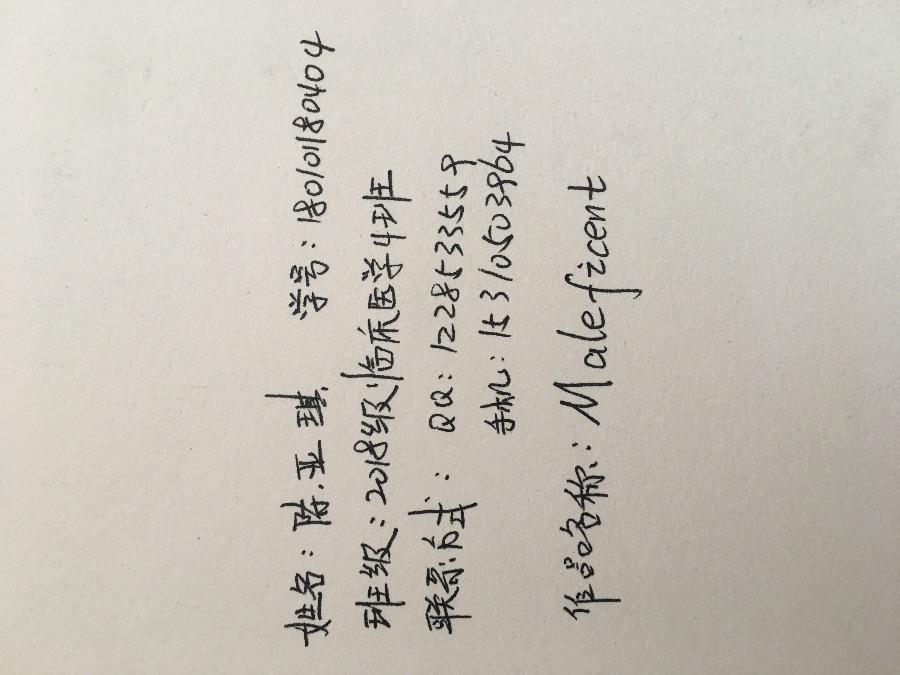 姓名：陈亚琪 学号：180101180404
班级：2018级临床医学4班
联系方式：QQ：1228533559
手机：15310503964
作品名称：Maleficent